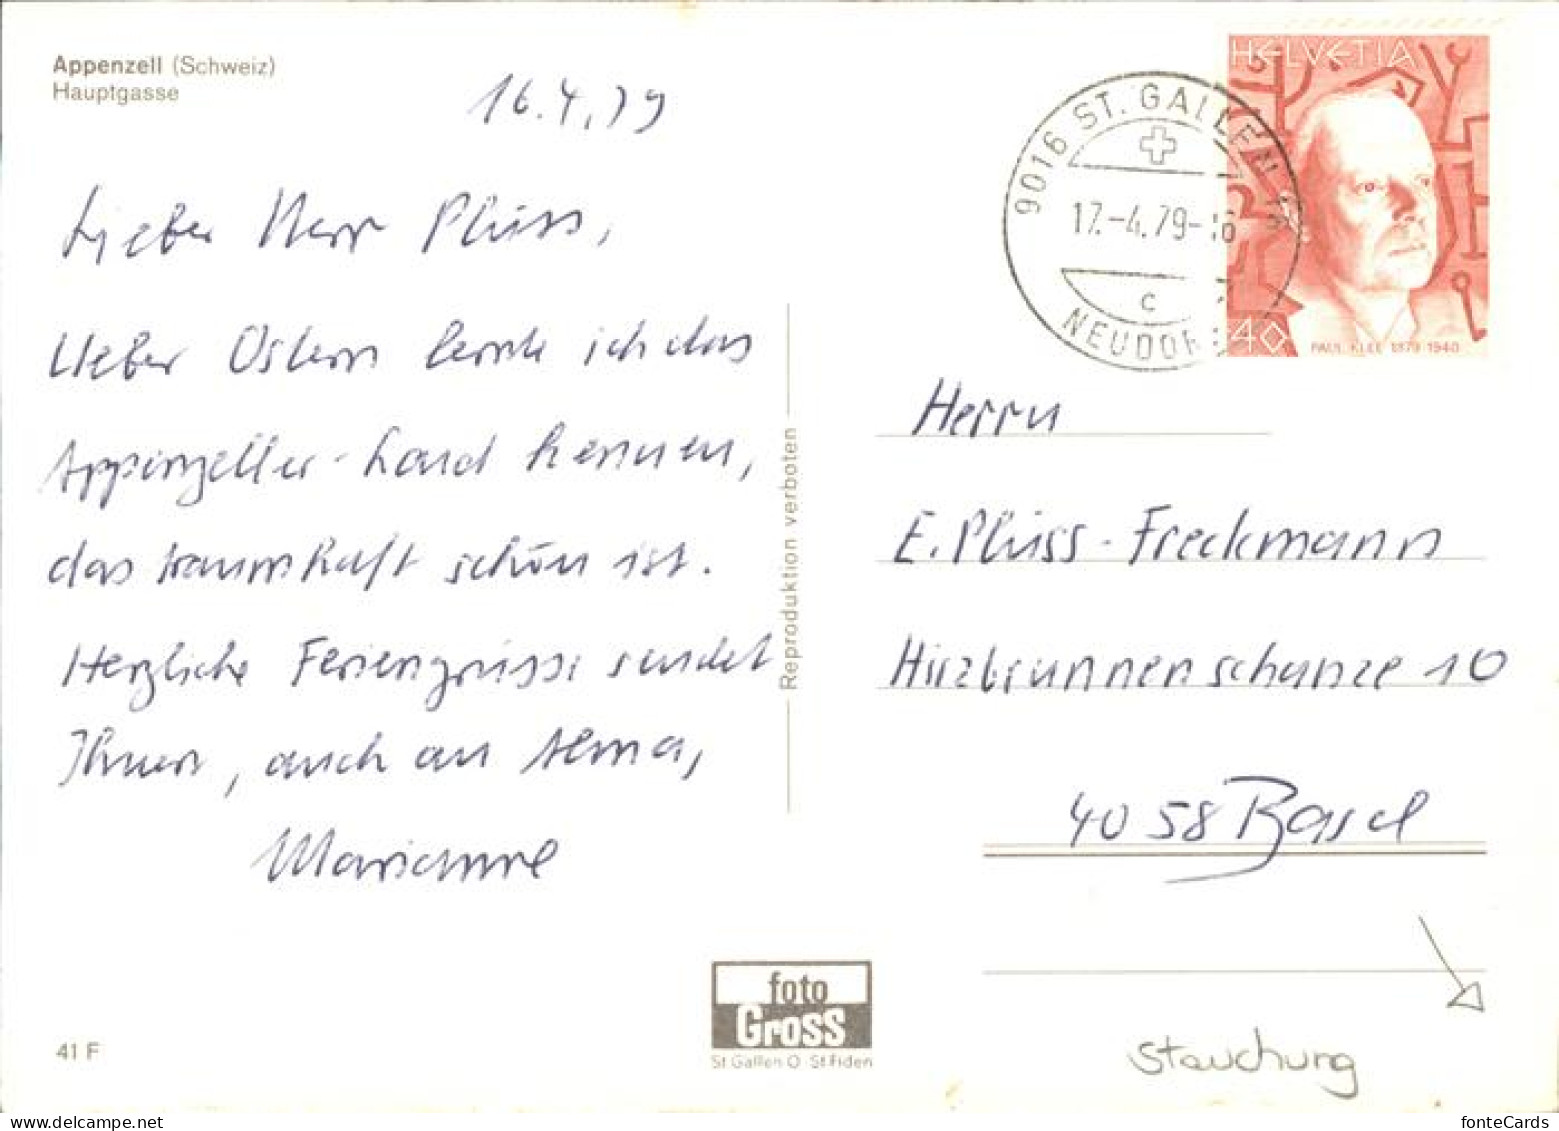 Appenzell (Schweiz)
Hauptgasse
16.4.79
Lieber Herr Plüss,
Ueber Ostern lernte ich das
Appenzeller-Land kennen,
das traumhaft schön ist.
Herzliche Feriengrüsse sendet
Ihnen, auch an Alma,
Marianne
41 F
Reproduktion verboten
foto
Gross
St Gallen O - St Fiden
HELVETIA
40
PAUL KLEE 1879-1940
9016 ST. GALLEN 16
17.-4.79-16
C
NEUDORF
Herrn
E. Plüss-Freckmann
Hirzbrunnenschanze 10
4058 Basel
Stauchung
fonteCards